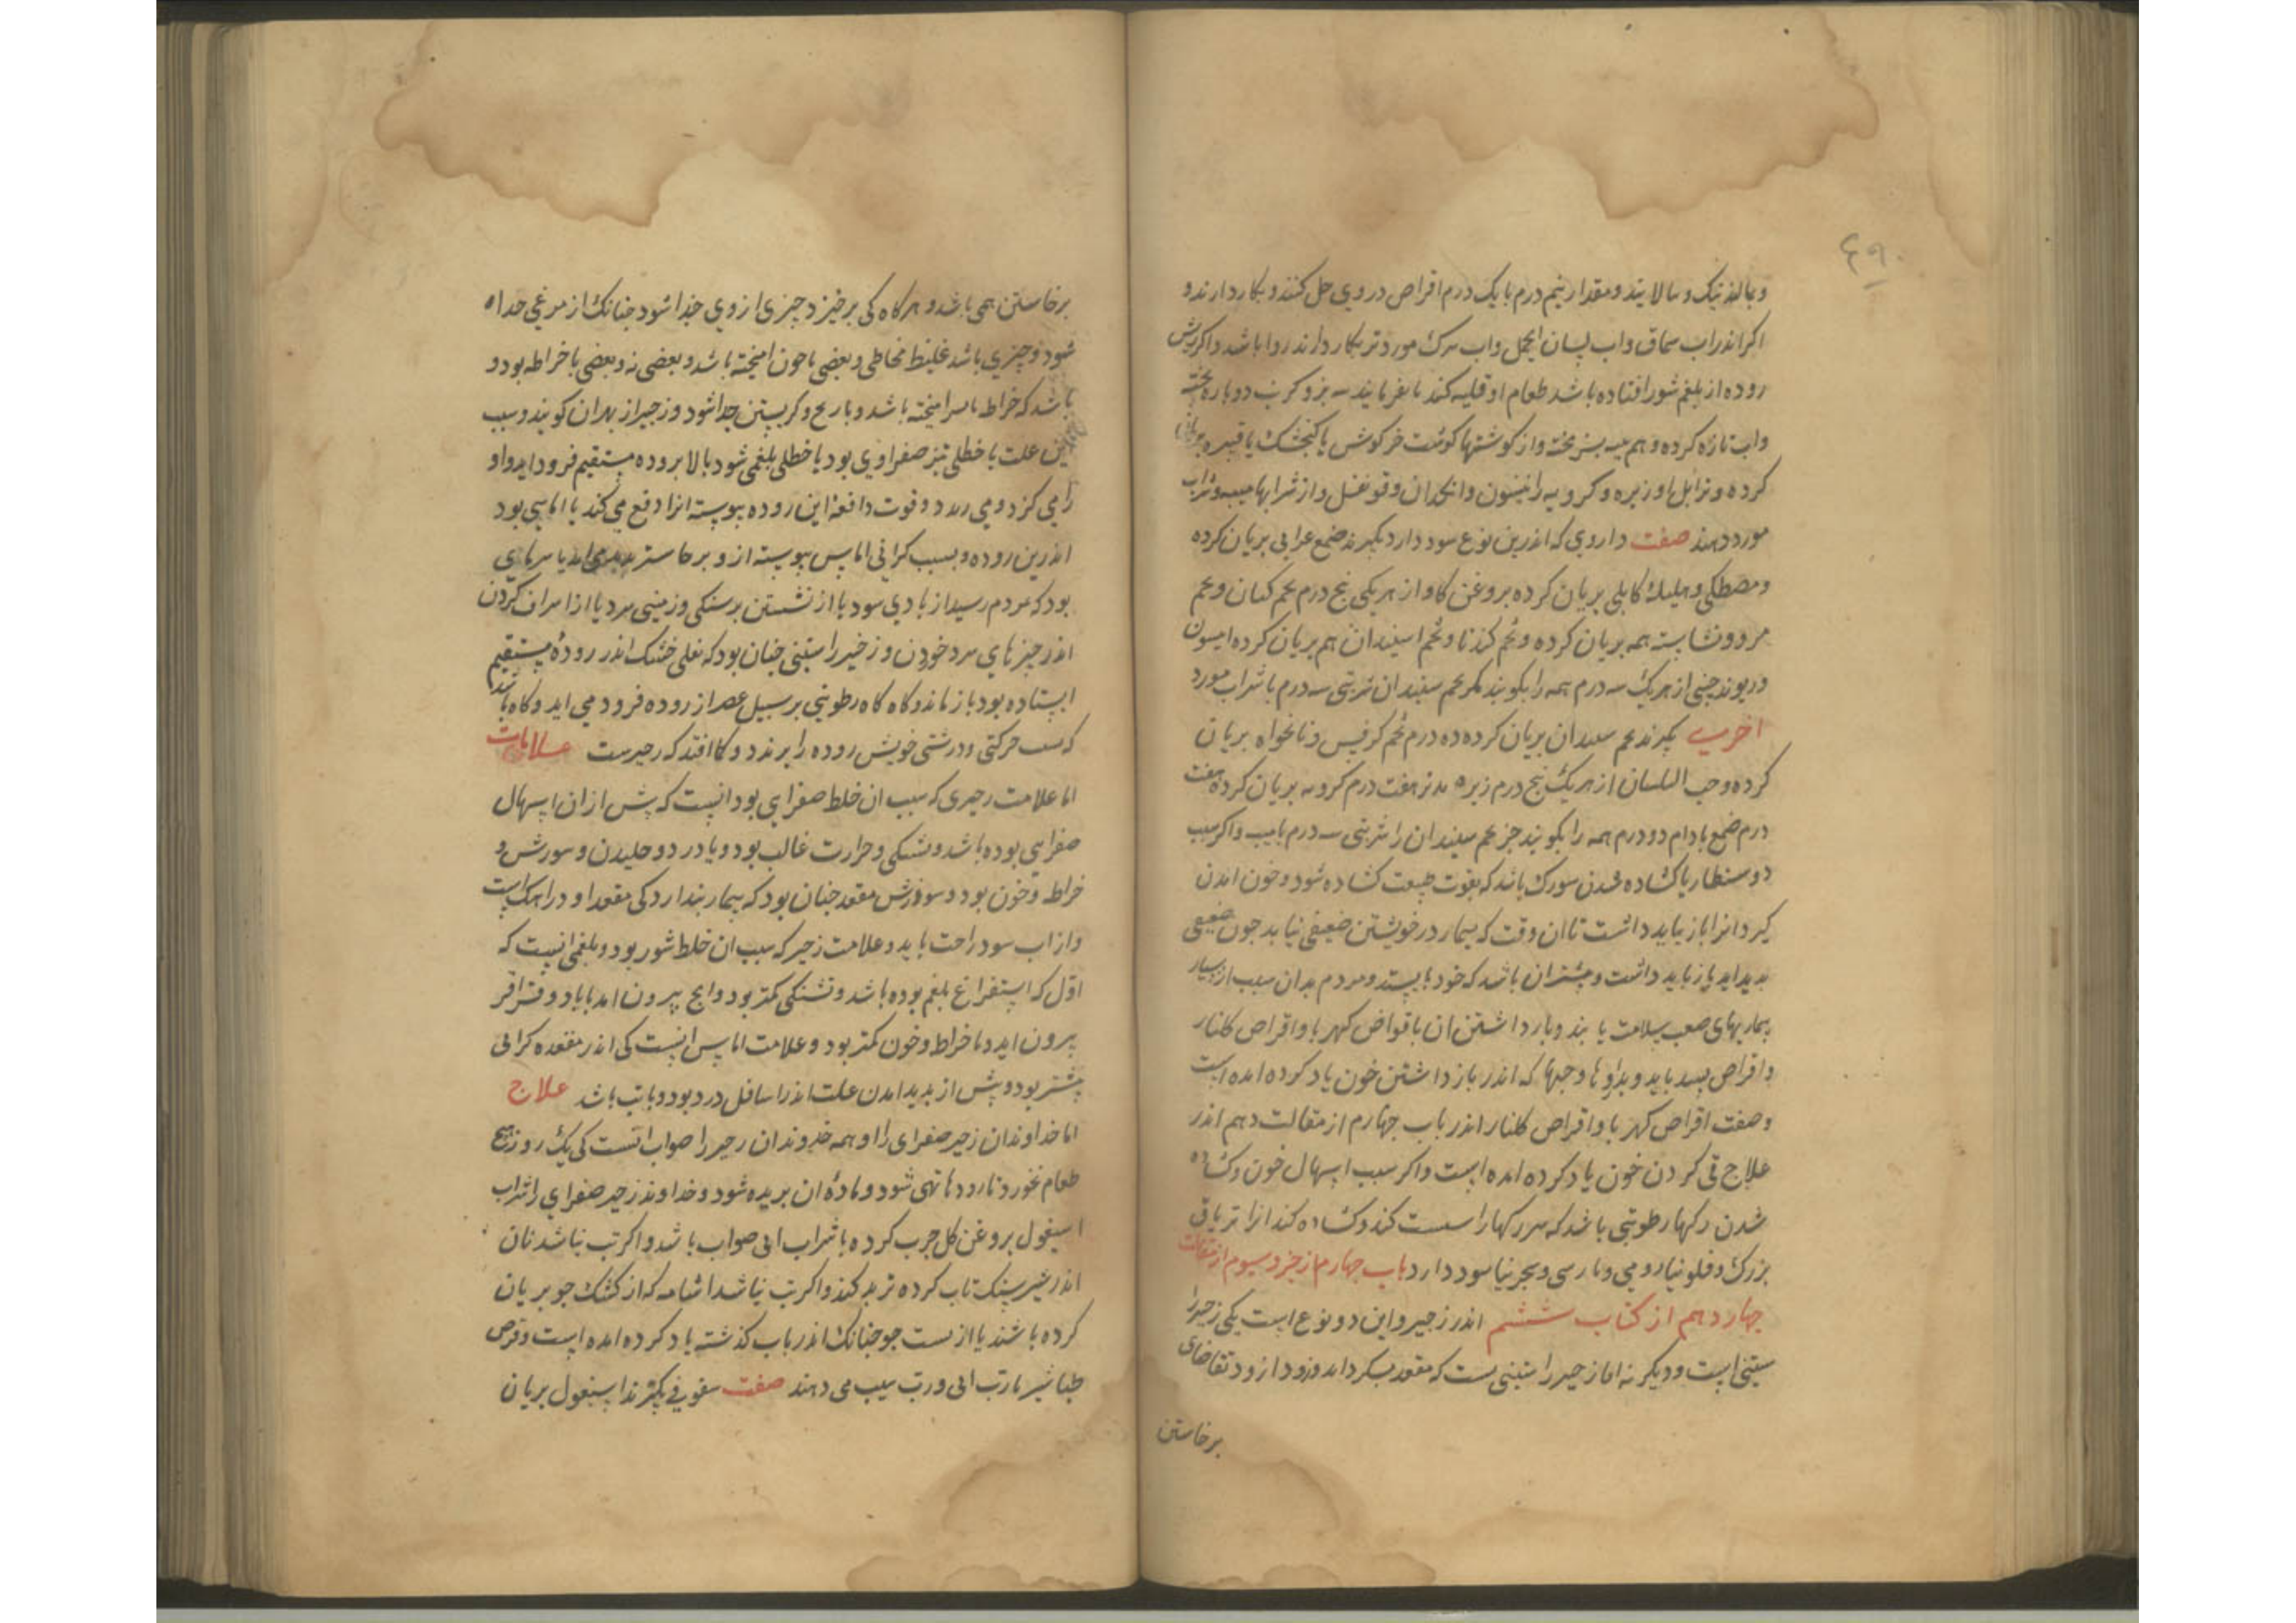 ۴۹
وبمالند نیک و بپالایند و مقدار نیم درم با یک درم اقراص در وی حل کنند و بکار دارند و
اکر اندر اب سماق واب لسان الحمل واب برک مورد تر بکار دارند روا باشد واکر ریش
روده از بلغم شور افتاده باشد طعام او قلیه کند نا بفرمایند بز و کرنب دوباره پخته
واب تازه کرده و هم پخته واز کوشتها کوشت خرکوش یا کنجشک یا قنبره بریان
کرده و توابل او زیره و کرویه و انیسون وانجدان و قرنفل واز شرابها میبه و شراب
مورد دهند صفت داروی که اندرین نوع سود دارد بکیرند صمغ عرابی بریان کرده
ومصطکی و هلیله کابلی بریان کرده بروغن کاو از هر یکی پنج درم تخم کتان و تخم
مرو و نشاسته همه بریان کرده و تخم کندنا و تخم اسپندان هم بریان کرده انیسون
وریوند چینی از هر یک سه درم همه را بکوبند مکر تخم سپندان شربتی سه درم با شراب مورد
اخری بکیرند تخم سپندان بریان کرده ده درم تخم کرفس و نانخواه بریان
کرده و حب البلسان از هر یک پنج درم زیره هفت درم کرویه بریان کرده هفت
درم صمغ بادام دو درم همه را بکوبند جز تخم سپندان را شربتی سه درم با میبه واکر سبب
دوسنطاریا کشاده شدن سر رک باشد که بقوت طبیعت کشاده شود و خون امدن
کیرد انرا باز نباید داشت تا ان وقت که بیمار در خویشتن ضعیفی نیابد جون ضعیفی
پدید اید باز باید داشت و بیشتر ان باشد که خود بایستد و مردم بدان سبب از بسیار
بیماریهای صعب سلامت یابند و باز داشتن ان باقراص کهربا و اقراص کلنار
واقراص بسد باید و بداروها و حبها که اندر باز داشتن خون یاد کرده امده است
وصفت اقراص کهربا و اقراص کلنار اندر باب جهارم از مقالت دهم اندر
علاج قی کردن خون یاد کرده امده است واکر سبب اسهال خون کشاده
شدن رکها رطوبتی باشد که سر رکها را سست کند و کشاده کند انرا تریاق
بزرک و فلونیا رومی و پارسی و سجزنیا سود دارد باب جهارم از جزو سیوم از مقالت
جهاردهم از کتاب ششم اندر زحیر واین دو نوع است یکی زحیر
ستنی است و دیکر نه اما زحیر راستینی است که مقعد بسکرد اید وزود ازود تقاضای
برخاستن
برخاستن همی باشد و هرکاه کی برخیزد چیزی از وی جدا شود جنانک از مرغی جدا
شود و چیزی باشد غلیظ مخاطی و بعضی با خون امیخته باشد و بعضی نه و بعضی با خراطه بود و
باشد که خراطه امیخته باشد و باریح و کریستن جدا شود و زحیر از بهران کویند و سبب
این علت یا خلطی تیز صفراوی بود یا خلطی بلغمی شود بالا بروده مستقیم فرود اید و او
را می کزد و می رند و قوت دافعه این روده پیوسته انرا دفع می کند یا اماسی بود
اندرین روده و بسبب کرانی اماس پیوسته ارزو برخاستن پدید می اید یا سرمای
بود که مردم رسید از بادی سرد یا از نشستن بر سنکی و زمینی سرد یا از اسراف کردن
اندر چیزهای سرد خوردن و زحیر راستینی جنان بود که ثفلی خشک اندر روده مستقیم
ایستاده بود باز ماند و کاه کاه رطوبتی بر سبیل عصر از روده فرود می اید و کاه باشد
که بسبب حرکتی و درشتی خویش روده را برندد و کمان افتد که زحیرست علامات
اما علامت زحیری که سبب ان خلط صفرایی بود انست که پیش از ان اسهال
صفرایی بوده باشد و تشنکی و حرارت غالب بود و با درد و خلیدن و سوزش و
خراطه و خون بود و سوزش مقعد جنان بود که بیمار پندارد کی مقعد او در اهک است
واز اب سرد راحت یابد و علامت زحیر که سبب ان خلط شور بود و بلغمی انست که
اول که استفراغ بلغم بوده باشد و تشنکی کمتر بود وانج بیرون اید با باد و قراقر
بیرون اید و با خراطه و خون کمتر بود و علامت اماس انست کی اندر مقعده کرانی
بیشتر بود و پیش از پدید امدن علت اندر اسافل درد بود و با تب باشد علاج
اما خداوندان زحیر صفرای را و همه خداوندان زحیر را صواب انست کی یک روز هیچ
طعام نخورد تا روده تهی شود و ماده ان بریده شود و خداوند زحیر صفرای را شراب
اسبغول بروغن کل جرب کرده باشراب ابی صواب باشد واکر تب نباشد نان
اندر شیر سنک تاب کرده ترید کند واکر تب نباشد اشامه که از کشک جو بریان
کرده باشند یا از پست جو جنانک اندر باب کذشته یاد کرده امده است و قرص
طباشیر با رب ابی و رب سیب می دهند صفت سفوفی بکیرند اسبغول بریان